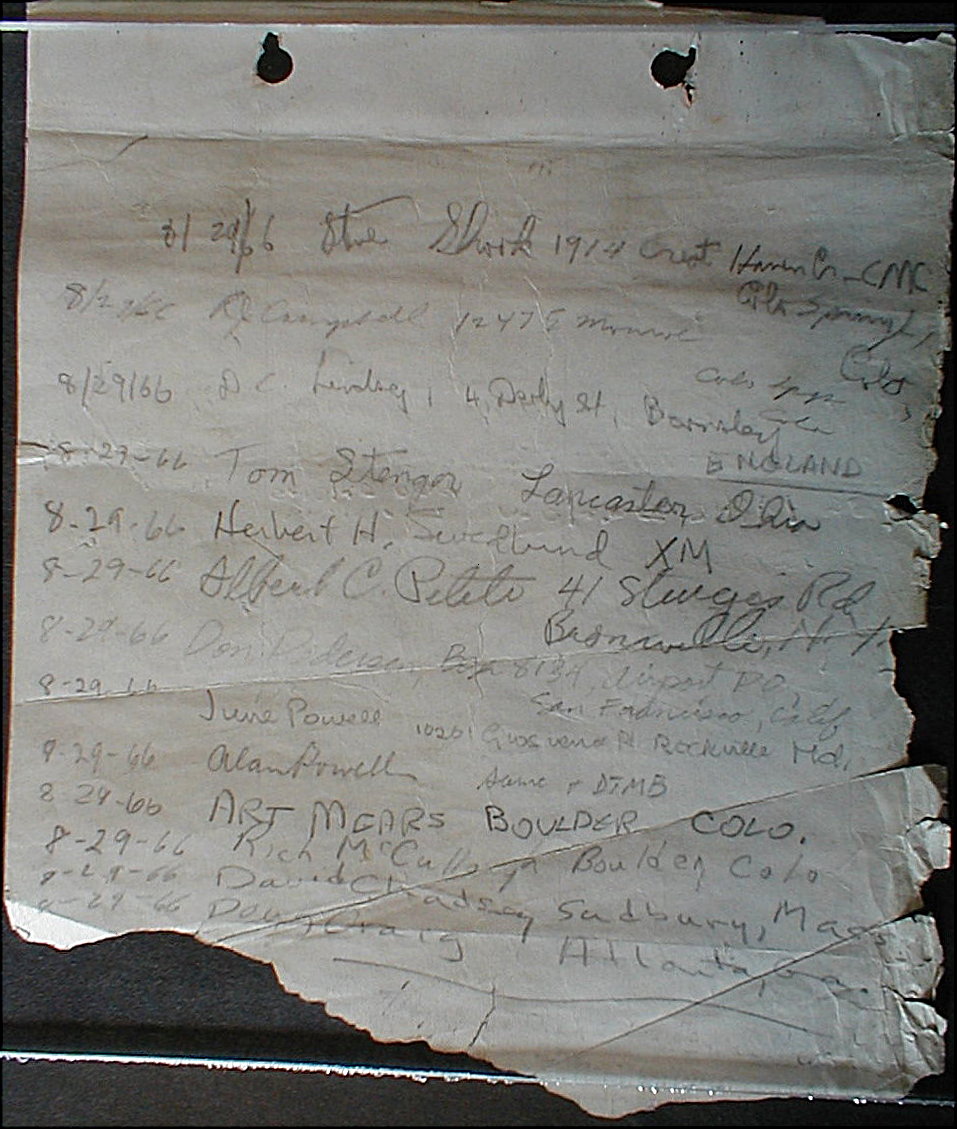 8/29/66 Steve Shork 1914 Crest Haven Cr - CMC
Colo Springs,
Colo
8/29/66 Campbell 1247 E Monroe
Colo Spgs
Colo
8/29/66 D C. Lindsey, 4, Derby St, Barnsley
ENGLAND
8-29-66 Tom Stenger Lancaster Ohio
8-29-66 Herbert H. Swedlund XM
8-29-66 Albert C. Peleto 41 Sturgis Rd
Bronxville, N.Y.
8-29-66 Don Pedersen, Box 8134, Airport P.O.
San Francisco, Calif
8-29-66 June Powell 10201 Grosvenor Pl Rockville Md.
8-29-66 Alan Powell Same DTMB
8-29-66 ART MEARS BOULDER COLO.
8-29-66 Rich McCullough Boulder, Colo
8-29-66 David Chadsey Sudbury, Mass
8-29-66 Doug Craig Atlanta, Ga.